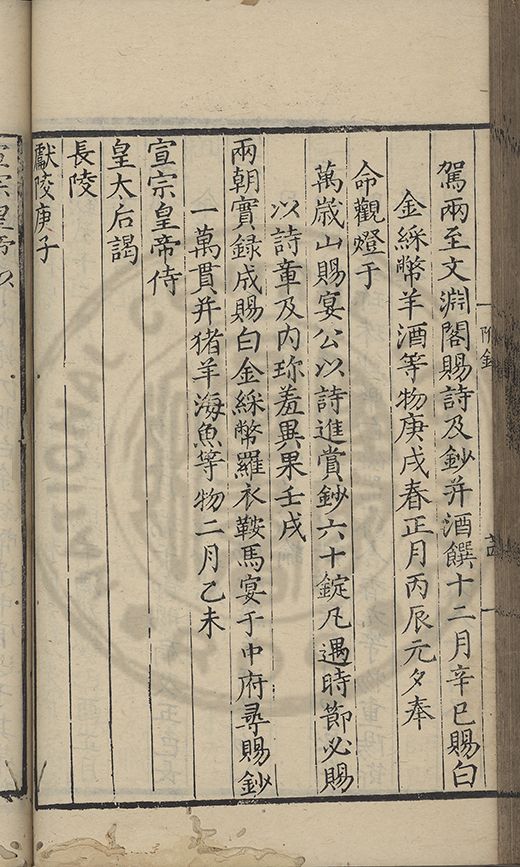 駕兩至文淵閣賜詩及鈔并酒饌十二月辛巳賜白
金綵幣羊酒等物庚戌春正月丙辰元夕奉
命觀燈于
萬歲山賜宴公以詩進賞鈔六十錠凡遇時節必賜
以詩章及内珎羞異果壬戌
兩朝實録成賜白金綵幣羅衣鞍馬宴于中府尋賜鈔
一萬貫并猪羊海魚等物二月乙未
宣宗皇帝侍
皇太后謁
長陵
獻陵庚子
附録